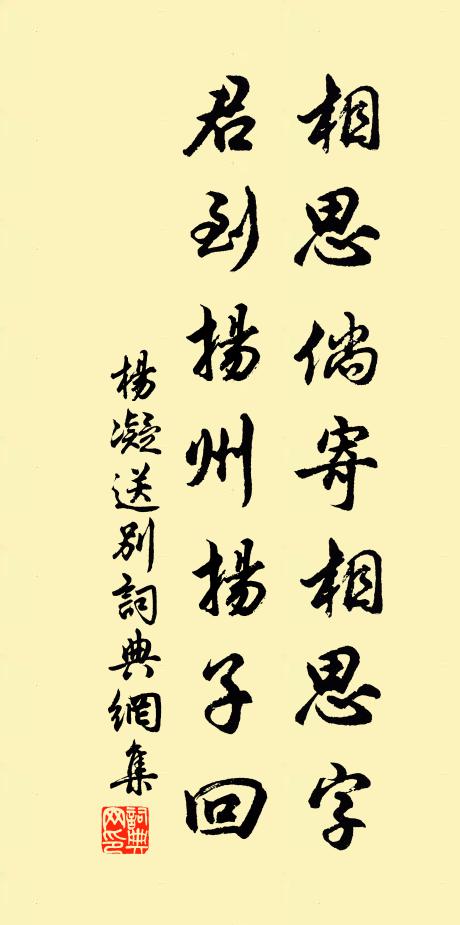 相思倘寄相思字
君到揚州揚子回
楊凝送別詞典網集
詞典网印